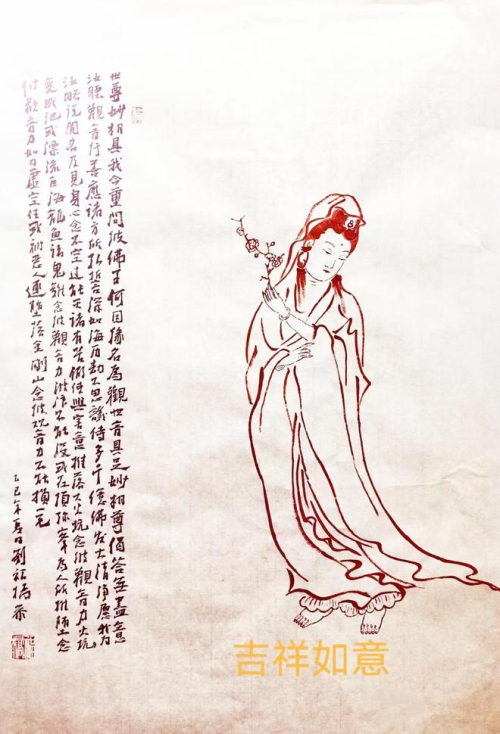 世尊妙相具我今重問彼佛子何因緣名為觀世音具足妙相尊偈答無盡意
汝聽觀音行善應諸方所弘誓深如海历劫不思議侍多千億佛发大清淨願我为
汝略说闻名及見身心念不空过能灭诸有苦假使興害意推落大火坑念彼觀音力火坑
变成池或漂流巨海龍魚诸鬼難念彼觀音力波浪不能没或在須弥峯为人所推堕念
彼觀音力如日虛空住或被惡人逐墮落金剛山念彼观音力不能損一毛
乙巳年夏日劉
吉祥如意